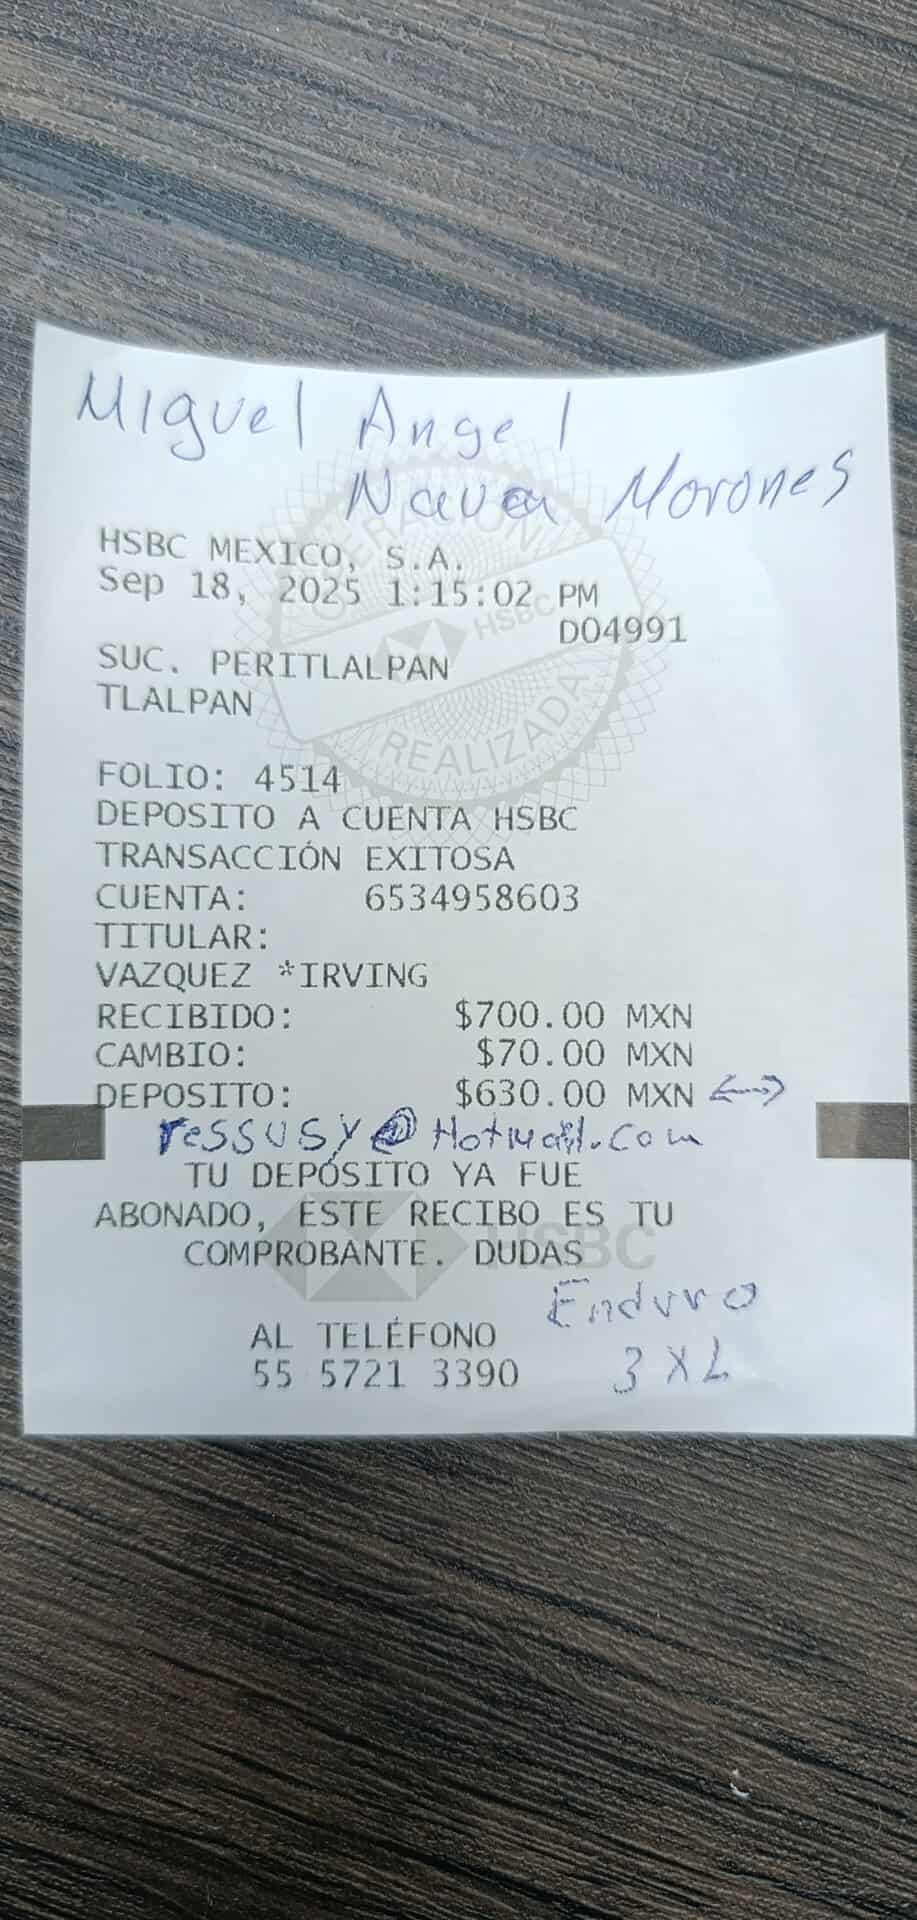 Miguel Angel
Nava Morones
HSBC MEXICO, S.A.
Sep 18, 2025 1:15:02 PM
D04991
SUC. PERITLALPAN
TLALPAN
OPERACION
HSBC
REALIZADA
FOLIO: 4514
DEPOSITO A CUENTA HSBC
TRANSACCIÓN EXITOSA
CUENTA: 6534958603
TITULAR:
VAZQUEZ *IRVING
RECIBIDO: $700.00 MXN
CAMBIO: $70.00 MXN
DEPOSITO: $630.00 MXN
ressusy@Hotmail.com
TU DEPÓSITO YA FUE
ABONADO, ESTE RECIBO ES TU
COMPROBANTE. DUDAS
HSBC
Enduro
AL TELÉFONO
55 5721 3390
3XL